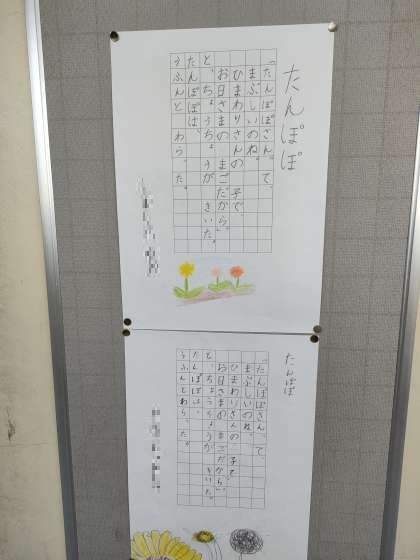 たんぽぽ
「たんぽぽさんって、
まぶしいのね。
ひまわりさんの 子で、
お日さまの まごだから。」
と、ちょうちょうが きいた。
たんぽぽは、
うふんと わらった。
たんぽぽ
「たんぽぽさんって、
まぶしいのね。
ひまわりさんの 子で、
お日さまの まごだから。」
と、ちょうちょうが きいた。
たんぽぽは、
うふんと わらった。